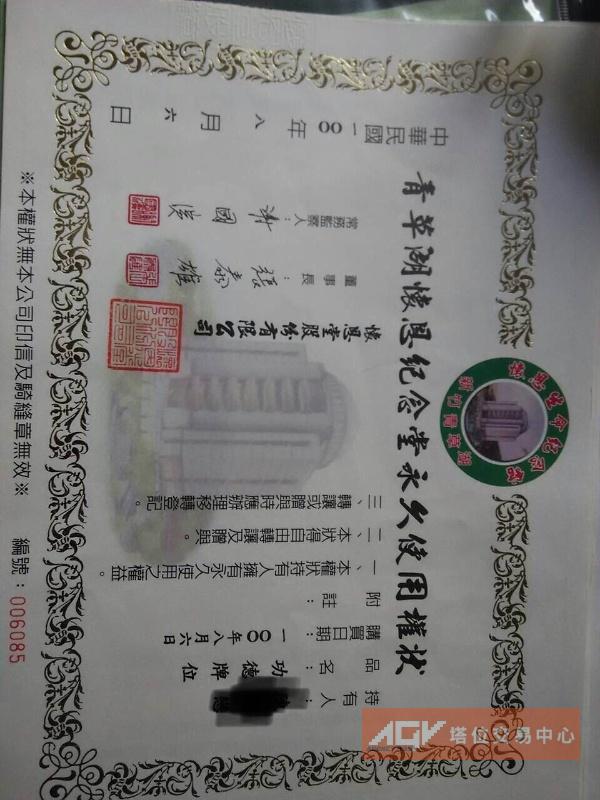 青草湖懷恩紀念堂永久使用權狀
新竹青草湖
持有人：
品名：功德牌位
購買日期：一00年八月六日
附註：
一、本權狀持有人擁有永久使用之權益。
二、本狀得自由轉讓及贈與。
三、轉讓或贈與時應辦理移轉登記。
懷恩堂股份有限公司
董事長：張泰雄
常務監察人：謝國俊
中華民國一00年八月六日
※本權狀無本公司印信及騎縫章無效※
編號：006085
AGV 塔位交易中心